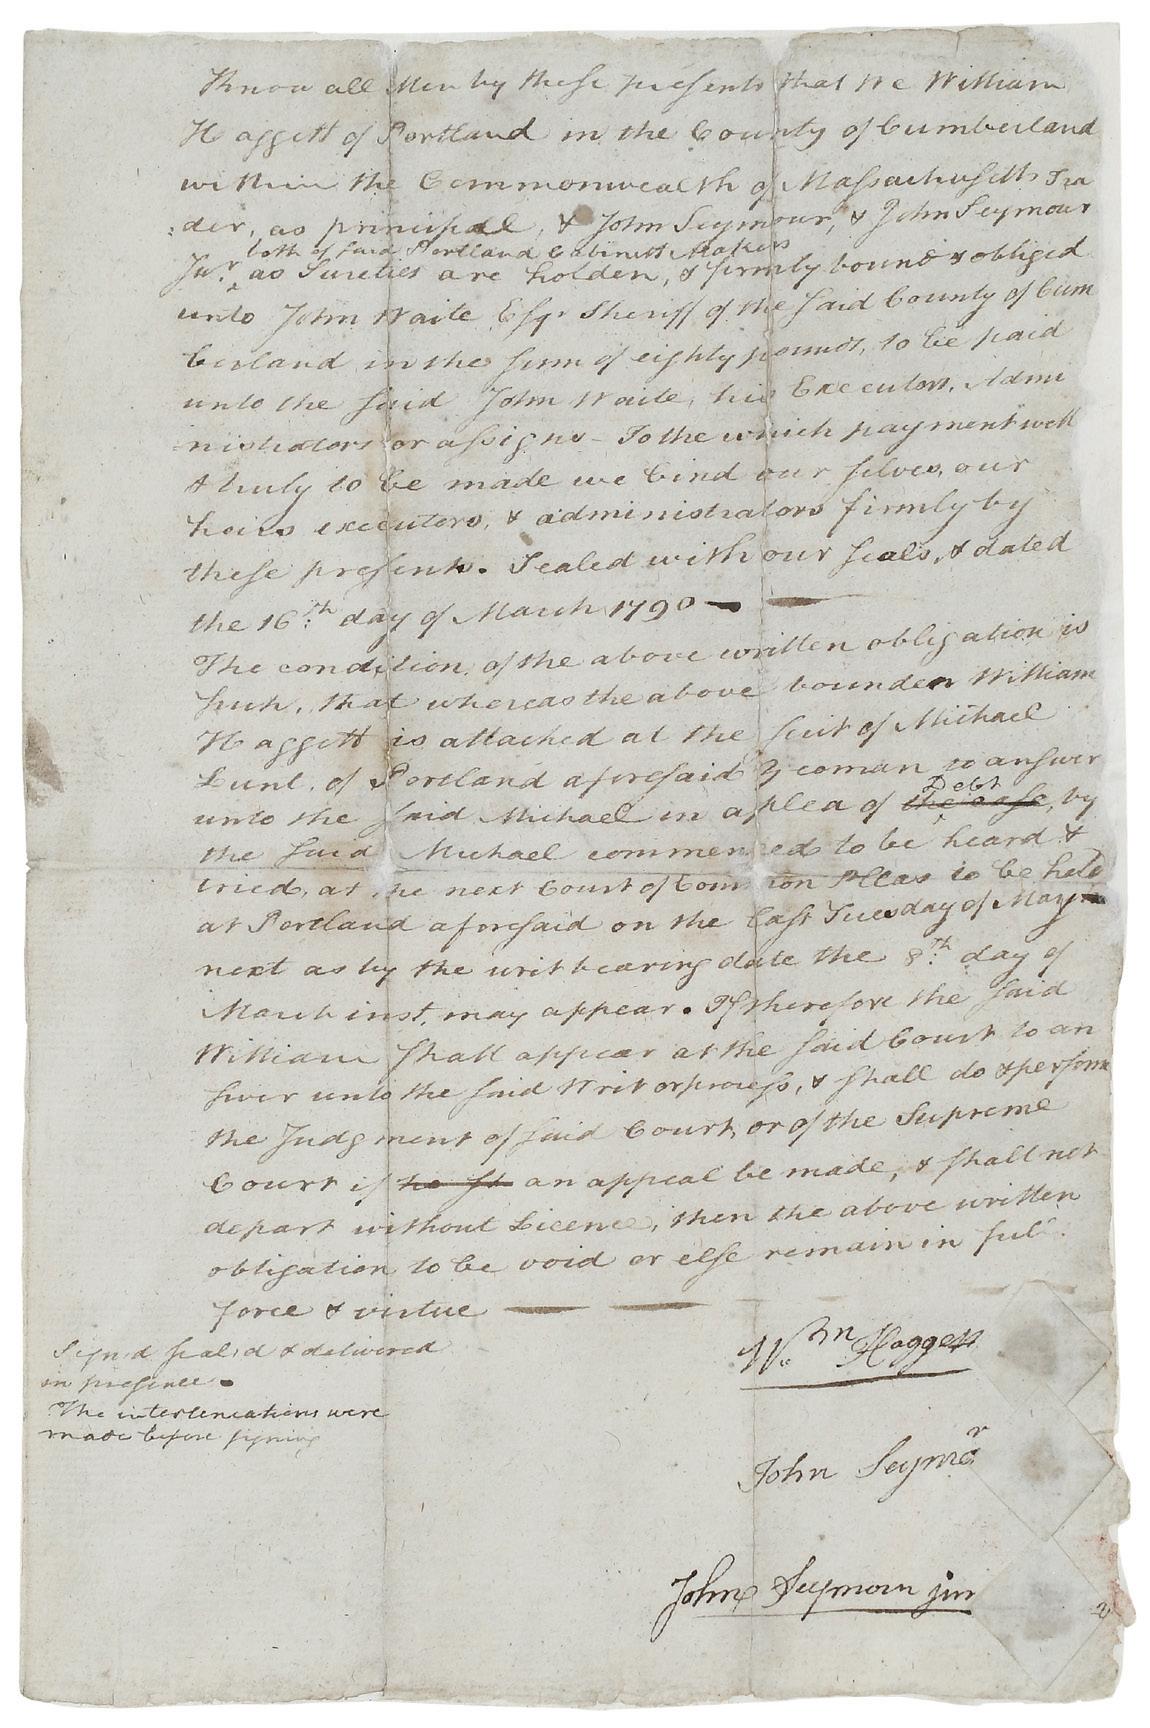 Know all Men by these presents that We William
Haggett of Portland in the County of Cumberland
within the Commonwealth of Massachusetts Tra
:der, as principal, & John Seymour, & John Seymour
both of said Portland Cabinett Makers
Junr. as Sureties are holden, & firmly bound & obliged
unto John Waite Esqr. Sheriff of the said County of Cum
berland in the sum of eighty pounds, to be paid
unto the said John Waite, his Executors, Admi
nistrators or assigns - To the which payment well
& truly to be made we bind our selves, our
heirs executors, & administrators firmly by
these presents. Sealed with our seals, & dated
the 16:th day of March 1790 —
The condition of the above written obligation is
such, that whereas the above bounden William
Haggett is attached at the suit of Michael
Lunt, of Portland aforesaid Yeoman to answer
Debt
unto the said Michael in a plea of the case, by
the said Michael commenced to be heard &
tried, at the next Court of Common Pleas to be held
at Portland aforesaid on the last Tuesday of May
next as by the writ bearing date the 8:th day of
March inst. may appear. If therefore the said
William shall appear at the said Court to an
swer unto the said Writ or process, & shall do & perform
the Judgment of said Court, or of the Supreme
Court if he sh an appeal be made, & shall not
depart without Licence, then the above written
obligation to be void or else remain in full
force & virtue —— ——
Signd seald & delivered
in presence.
The interleneations were
made before signing
Wm. Haggett
John Seymor
John Seymour jun